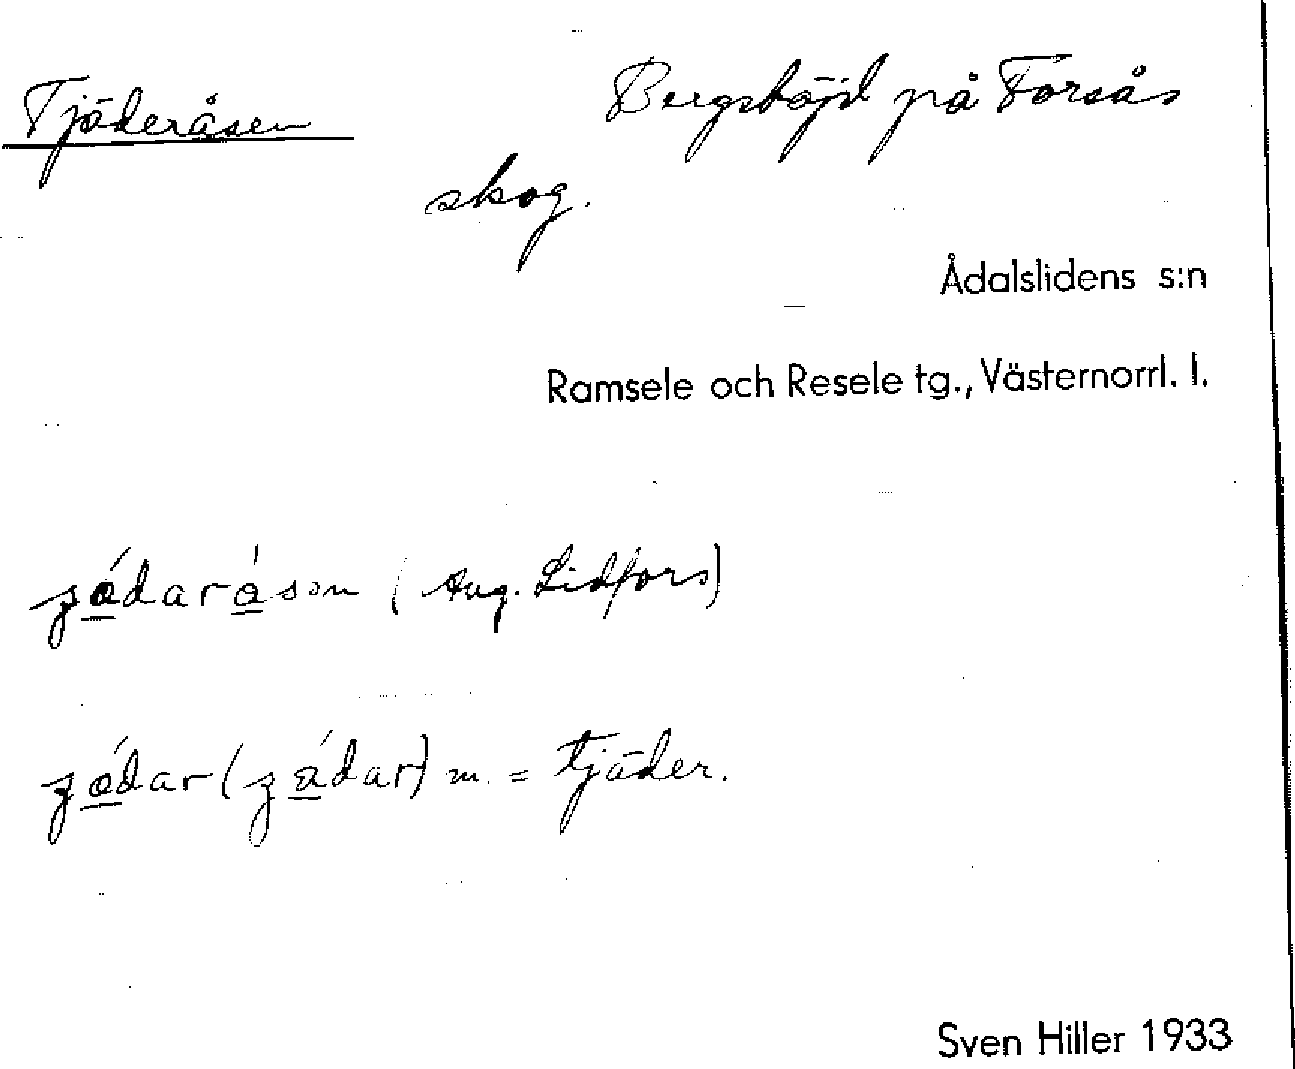 Tjäderåsen Bergshöjd på Forsås
skog.
Ådalslidens s:n
Ramsele och Resele tg., Västernorrl. l.
(Aug. Lidfors)
m. = tjäder.
Sven Hiller 1933